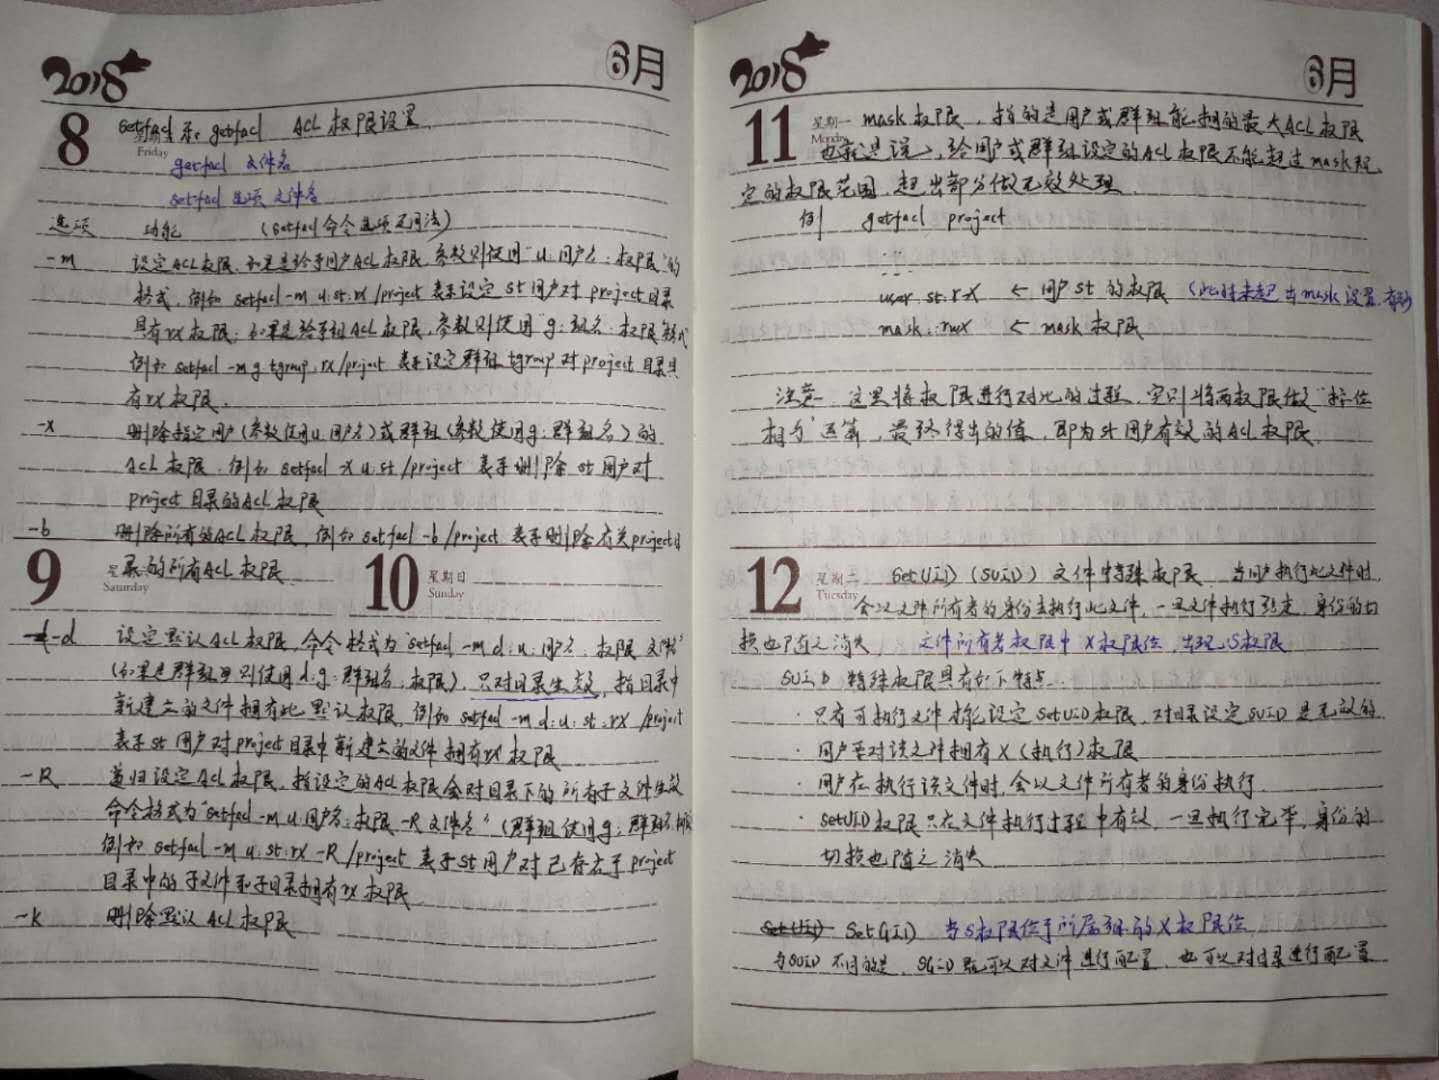 2018
6月
8
Friday
setfacl 和 getfacl ACL 权限设置
getfacl 文件名
setfacl 选项 文件名
选项 功能 (setfacl命令选项及用法)
-m 设定ACL权限,如果是给予用户ACL权限,参数则使用"u:用户名:权限"的
格式,例如 setfacl -m u:st:rx /project 表示设定 st 用户对 project 目录
具有rx权限;如果是给予组ACL权限,参数则使用"g:组名:权限"格式
例如 setfacl -m g:tgroup:rx /project 表示设定群组 tgroup 对 project 目录具
有rx权限.
-x 删除指定用户(参数使用u:用户名)或群组(参数使用g:群组名)的
ACL 权限,例如 setfacl -x u:st /project 表示删除 st 用户对
project 目录的ACL权限
-b 删除所有的ACL权限,例如 setfacl -b /project 表示删除有关project目
录的所有ACL权限
9
Saturday
10
星期日
Sunday
-d 设定默认ACL权限,命令格式为"setfacl -m d:u:用户名:权限 文件名"
(如果是群组则使用d:g:群组名:权限),只对目录生效,指目录中
新建立的文件拥有此默认权限,例如 setfacl -m d:u:st:rx /project
表示st用户对project目录中新建立的文件拥有rx权限
-R 递归设定ACL权限,指设定的ACL权限会对目录下的所有子文件生效
命令格式为"setfacl -m u:用户名:权限 -R 文件名"(群组使用g:群组名:权限
例如 setfacl -m u:st:rx -R /project 表示st用户对已存在于project
目录中的子文件和子目录拥有rx权限
-k 删除默认ACL权限
2018
6月
11
星期一
Monday
mask权限,指的是用户或群组能拥的最大ACL权限
也就是说,给用户或群组设定的ACL权限不能超过mask规
定的权限范围,超出部分做无效处理
例 getfacl project
user:st:rx ← 用户st的权限 (此时未超出mask设置,有效)
mask::rwx ← mask权限
注意 这里将权限进行对比的过程,实则将两权限做"按位
相与"运算,最终得出的值,即为st用户有效的ACL权限.
12
星期二
Tuesday
SetUID (SUID) 文件特殊权限 当用户执行此文件时,
会以文件所有者的身份去执行此文件,一旦文件执行结束,身份的切
换也随之消失 文件所有者权限中 x权限位,出现s权限
SUID 特殊权限具有如下特点.
· 只有可执行文件才能设定SetUID权限,对目录设定SUID是无效的
· 用户要对该文件拥有x(执行)权限
· 用户在执行该文件时,会以文件所有者的身份执行
· SetUID权限只在文件执行过程中有效,一旦执行完毕,身份的
切换也随之消失
SetUID SetGID 当s权限位于所属组的x权限位
与SUID不同的是,SGID既可以对文件进行配置,也可以对目录进行配置